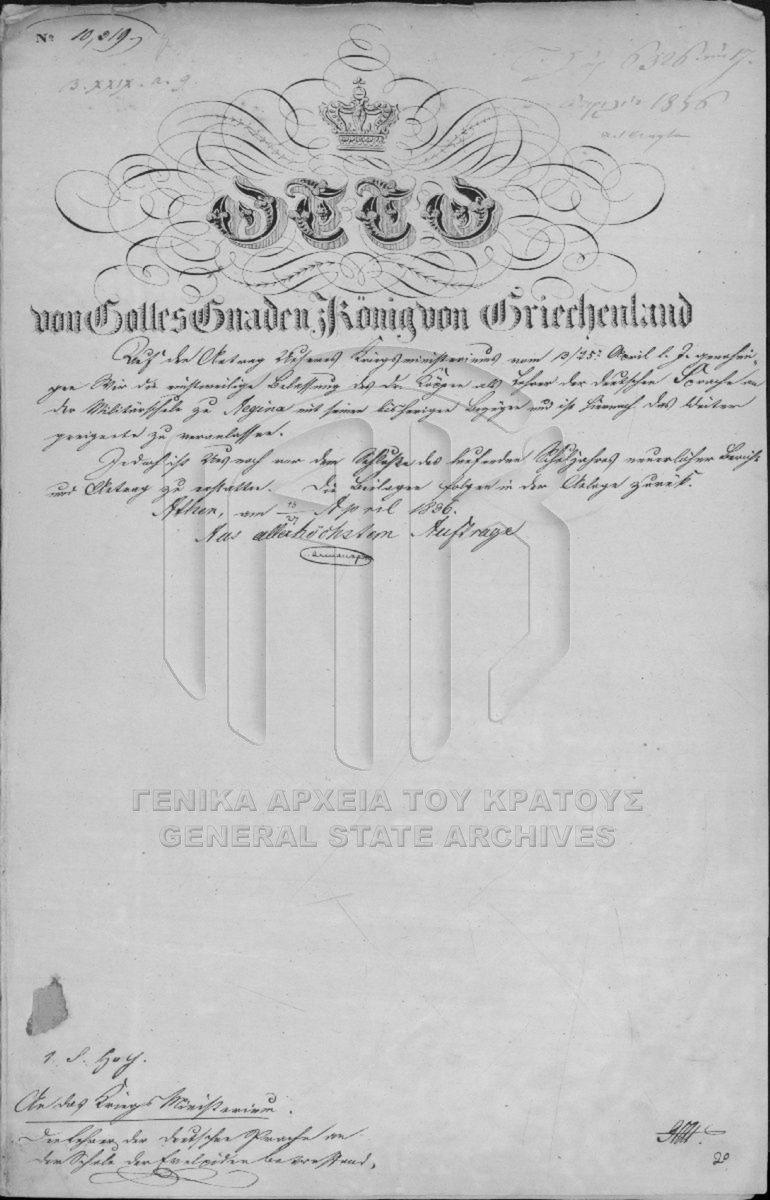 No 10,819
B. XXIX. a. 9.
1836
OTTO
von Gottes Gnaden König von Griechenland
Auf den Antrag Unseres Kriegsministeriums vom 13/25n April l. J. genehmi-
gen Wir die einstweilige Belassung des Dr. als Lehrer der deutschen Sprache an
der Militärschule zu Aegina mit seinen bisherigen Bezügen und ist hiernach das Weiter
geeignete zu veranlassen.
Jedoch ist Uns noch vor dem Schluße des laufenden Schuljahres neuerlicher Bericht
und Antrag zu erstatten. Die Beilagen folgen in der Anlage zurük.
Athen, am April 1836.
Aus allerhöchstem Auftrage
ΓΕΝΙΚΑ ΑΡΧΕΙΑ ΤΟΥ ΚΡΑΤΟΥΣ
GENERAL STATE ARCHIVES
An das Kriegs Ministerium.
Den Lehrer der deutschen Sprache an
der Schule der Evelpiden betreffend.
20